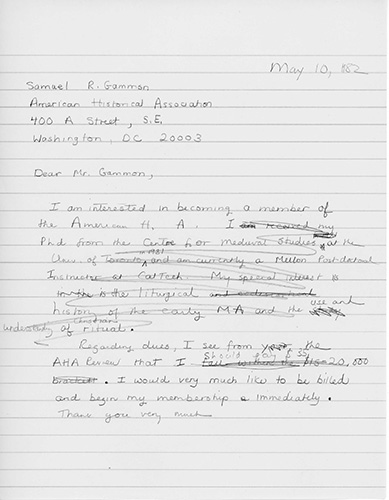 May 10, 1982
Samuel R. Gammon
American Historical Association
400 A Street, S.E.
Washington, DC 20003
Dear Mr. Gammon,
I am interested in becoming a member of
the American H. A. I am received my
Phd from the Centre for Medieval Studies at the
in 1981
Univ. of Toronto and am currently a Mellon Post-doctoral
Instructor at CalTech. My special interest is
in the is the liturgical and ecclesiastical
history of the early MA and the use and
understanding of Christian ritual.
Regarding dues, I see from your the
should pay $35
AHA Review that I fall within the $15-20,000
bracket. I would very much like to be billed
and begin my membership immediately.
Thank you very much